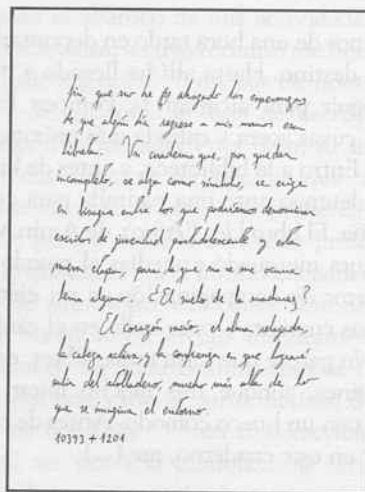 fin, que no he ahogado las esperanzas
de que algún día regrese a mis manos en
libertad. Un cuaderno que, por quedar
incompleto, se alza como símbolo, se erige
en bisagra entre los que podríamos denominar
escritos de juventud postadolescente y esta
nueva etapa, para la que no se me ocurre
lema alguno. ¿El vuelo de la madurez?
El corazón vacío, el alma relajada,
la cabeza activa, y la confianza en que lograré
salir del atolladero, mucho más allá de lo
que se imagina el entorno.
10393 + 1201